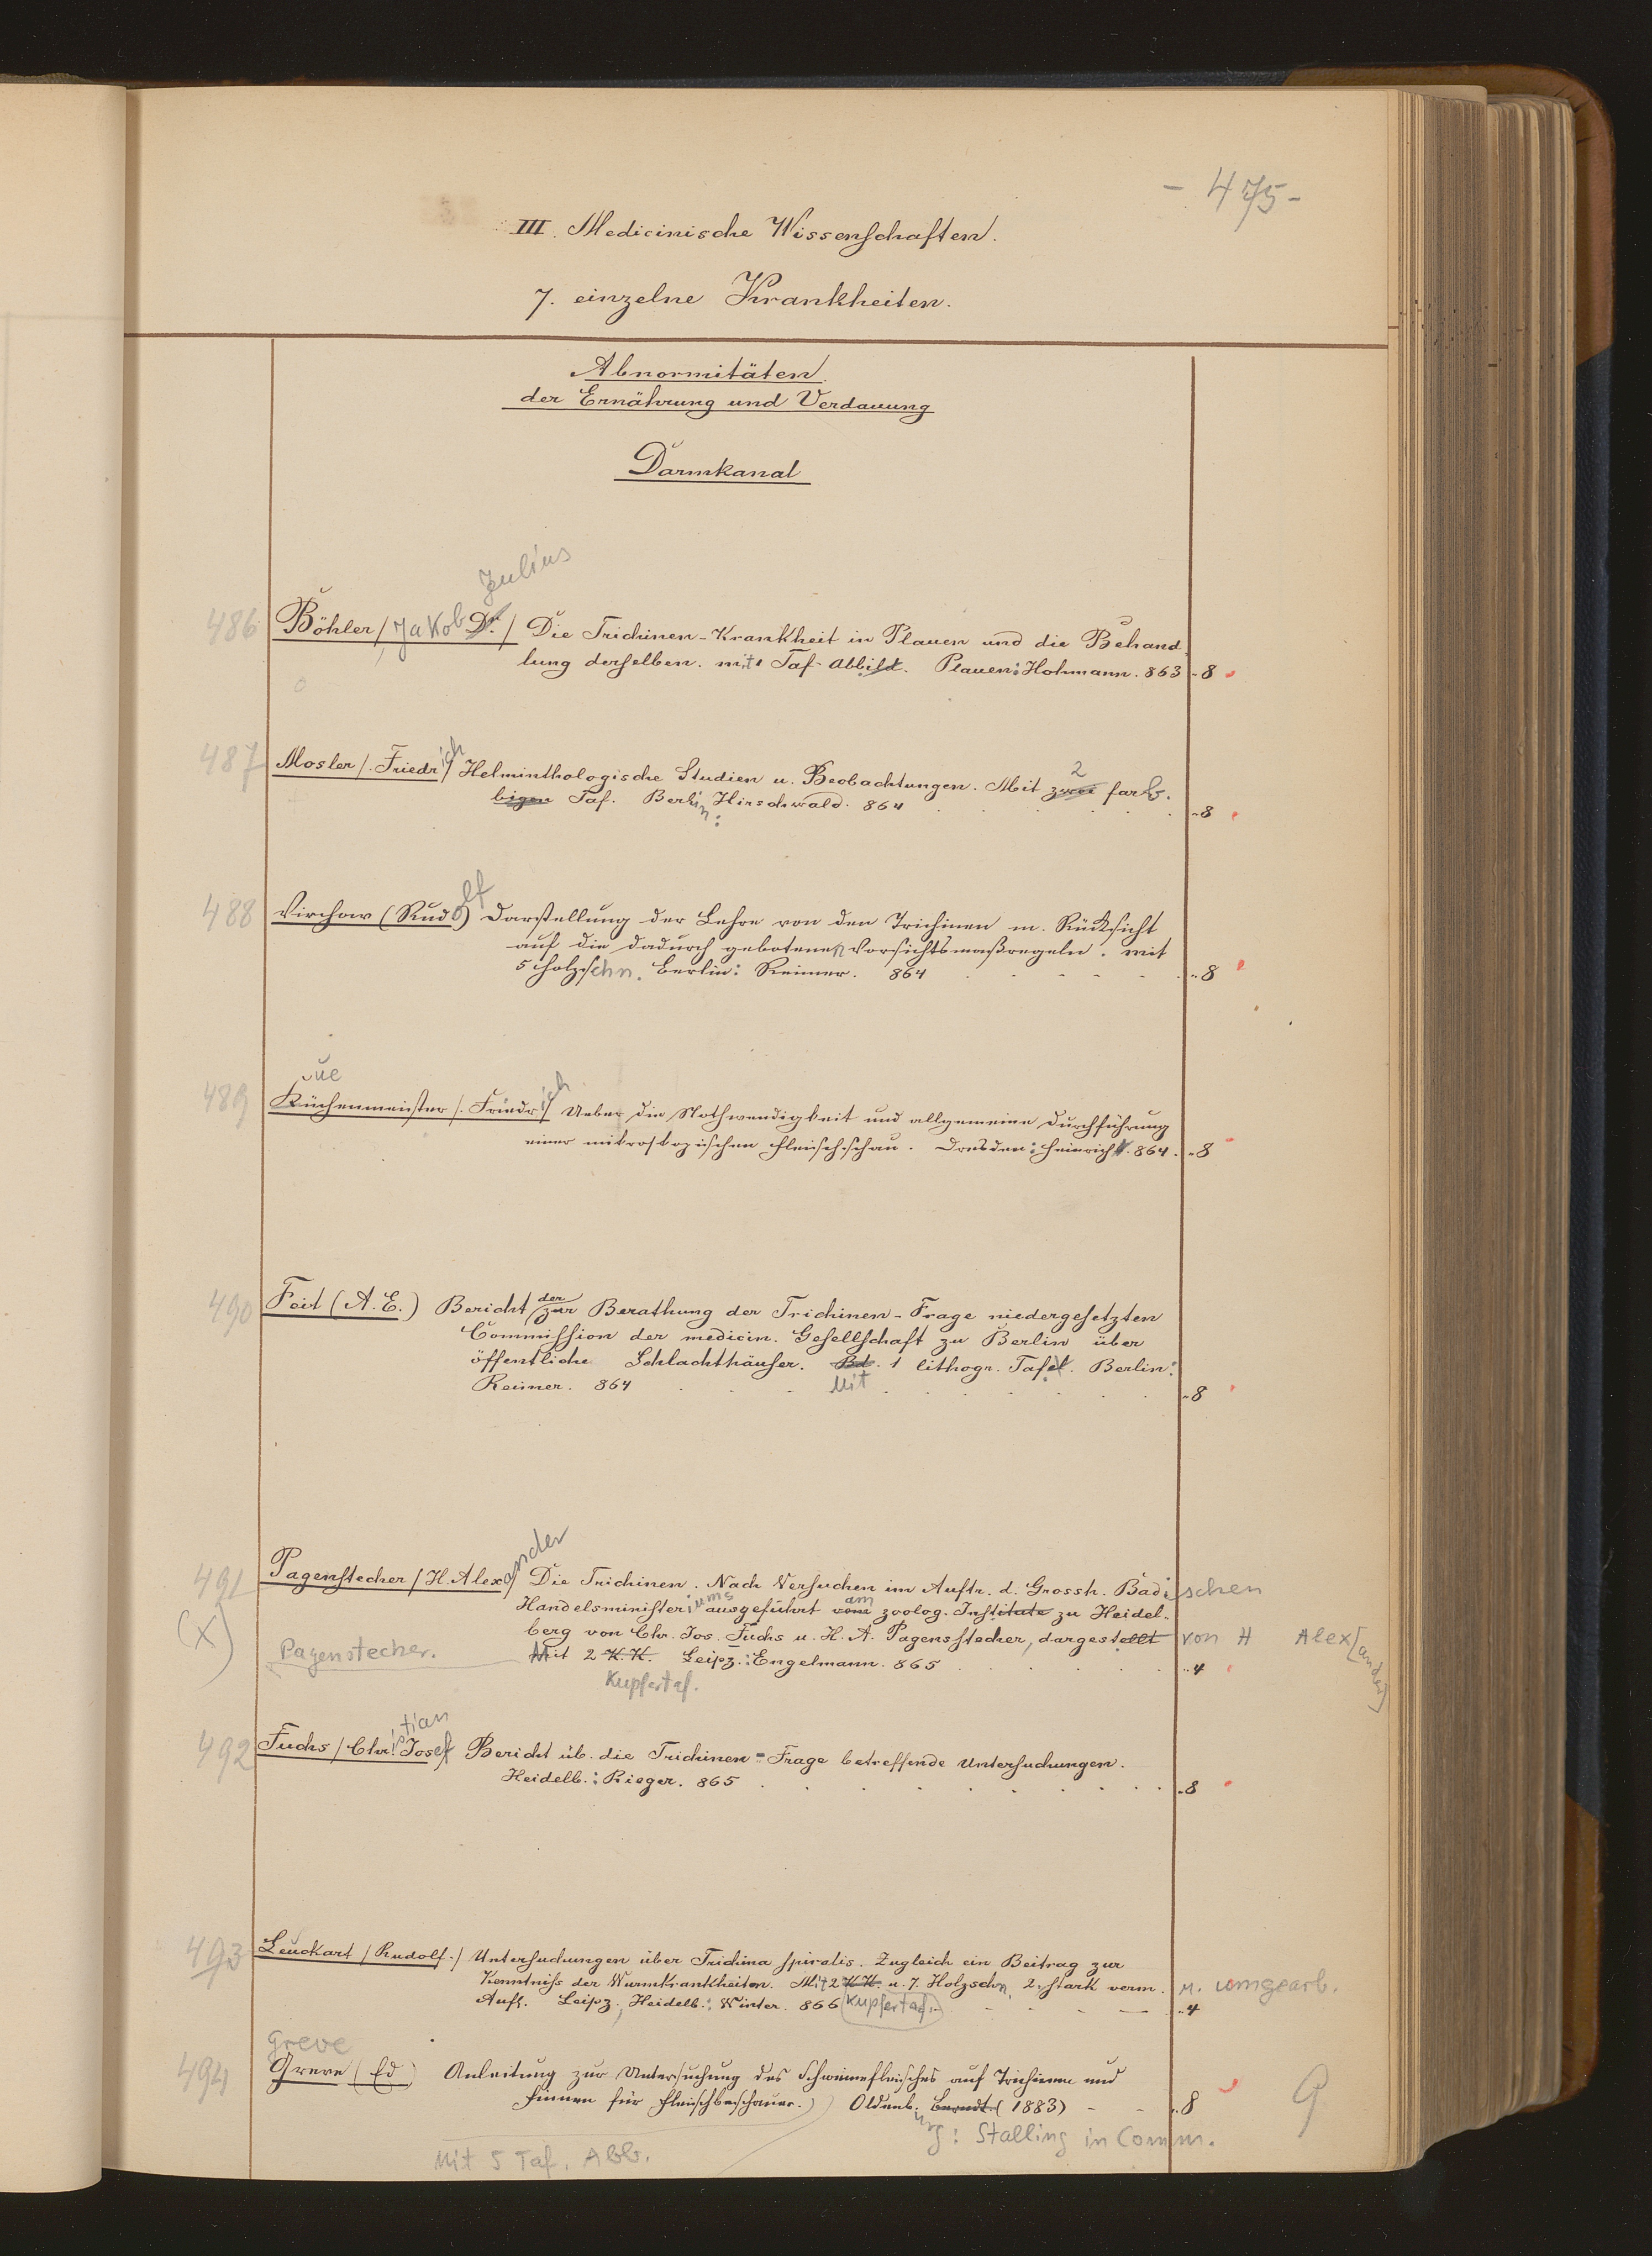 - 475 -
III. Medicinische Wissenschaften.
7. einzelne Krankheiten.
Abnormitäten
der Ernährung und Verdauung
Darmkanal
Julius
486 Böhler / Jakob Dr. / Die Trichinen-Krankheit in Plauen und die Behand-
lung derselben. mit 1 Taf. Abbild. Plauen: Hohmann. 863 - 8
487 Mosler /. Friedrich / Helminthologische Studien u. Beobachtungen. Mit zwei 2 farb.
bigen Taf. Berlin: Hirschwald. 864 . . . . „8
488 Virchow (Rudolf) Darstellung der Lehre von den Trichinen m. Rücksicht
auf die dadurch gebotenen Vorsichtsmaßregeln. mit
5 Holzschn. Berlin: Reimer. 864 - - - - „8
ue
489 Küchenmeister /. Friedrich / Ueber die Nothwendigkeit und allgemeine Durchführung
einer mikroskopischen Fleischschau. Dresden: Heinrich. 864. „8
490 Feit (A. E.) Bericht der zur Berathung der Trichinen-Frage niedergesetzten
Commission der medicin. Gesellschaft zu Berlin über
öffentliche Schlachthäuser. Bd. Mit 1 lithogr. Tafel. Berlin:
Reimer. 864 . . . . „8
491 Pagenstecher / H. Alexander / Die Trichinen. Nach Versuchen im Auftr. d. Grossh. Badischen
Handelsministeriums ausgeführt vom am zoolog. Institute zu Heidel-
(x) berg von Chr. Jos. Fuchs u. H. A. Pagenstecher, dargestellt von H Alex[ander]
Pagenstecher. Mit 2 K.K. Leipz.: Engelmann. 865 . . . . „4
Kupfertaf.
492 Fuchs / Christian Josef Bericht üb. die Trichinen-Frage betreffende Untersuchungen.
Heidelb.: Rieger. 865 . . . . „8
493 Leuckart / Rudolf. / Untersuchungen über Trichina spiralis. Zugleich ein Beitrag zur
Kenntniss der Wurmkrankheiten. Mit 2 K.K. u. 7. Holzschn. 2. stark verm. u. umgearb.
Aufl. Leipz., Heidelb.: Winter. 866 Kupfertaf. - - - „4
Greve
494 Greve (Ed) Anleitung zur Untersuchung des Schweinefleisches auf Trichinen und
Finnen für Fleischbeschauer.) Oldenb. Berndt. (1883) - - „8 9
urg: Stalling in Comm.
Mit 5 Taf. Abb.